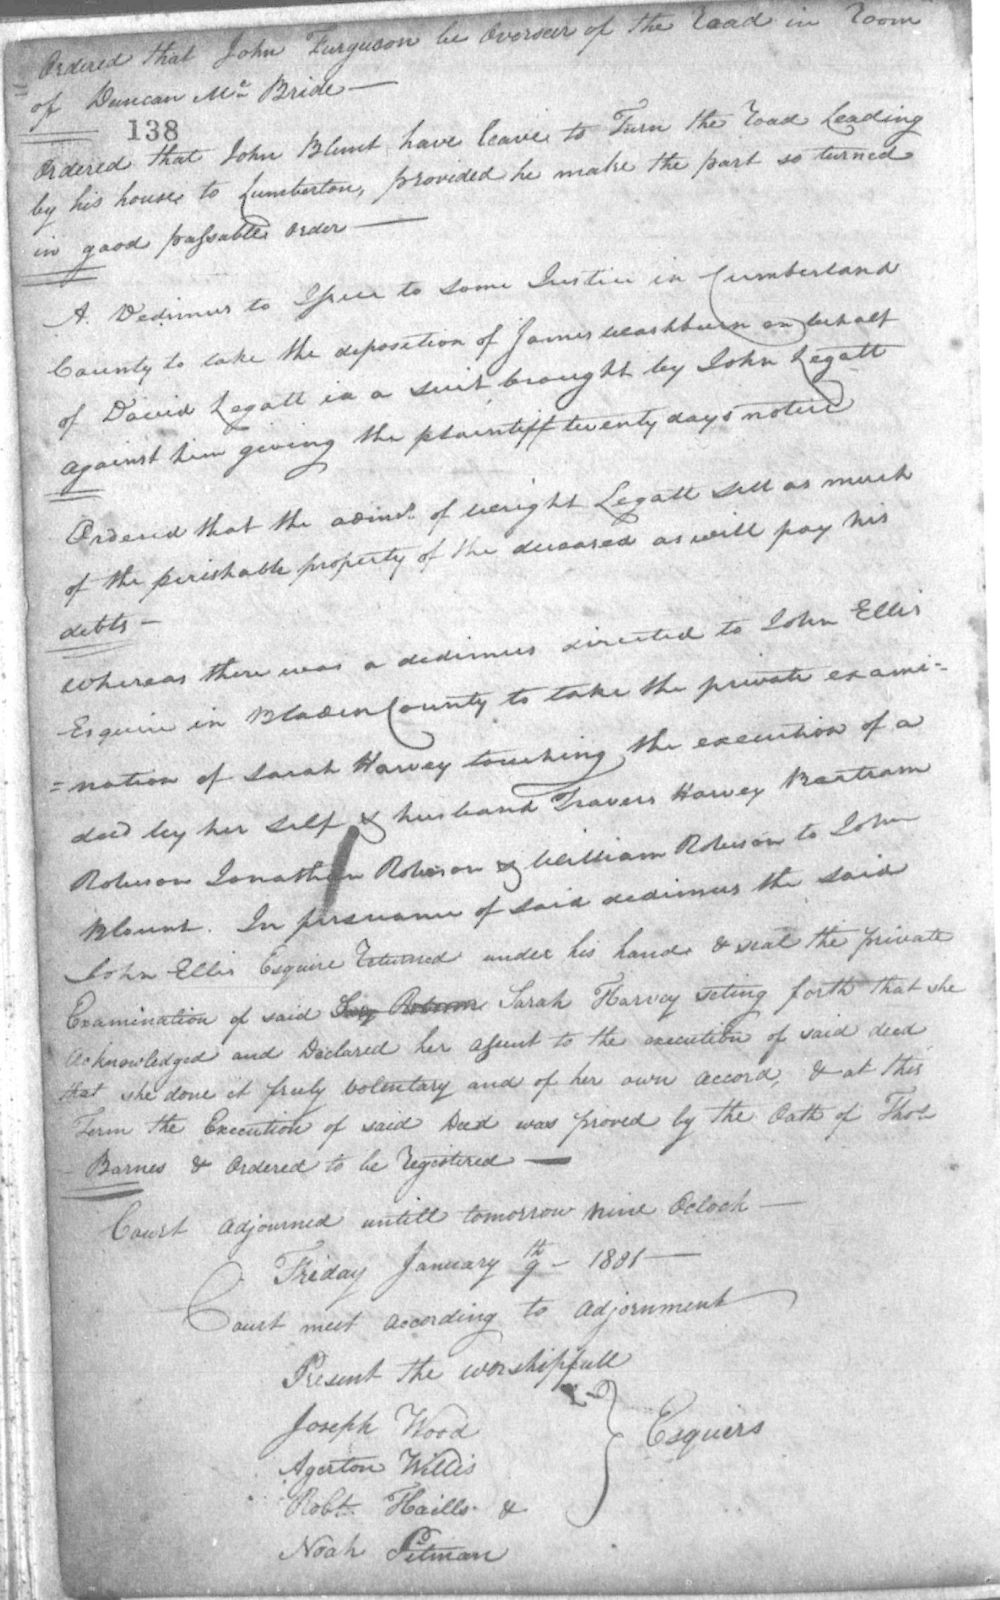 Ordered that John Furguson be Overseer of the Road in Room
of Duncan Mc Bride —
138
Ordered that John Blunt have leave to Turn the road Leading
by his house to Lumberton, provided he make the part so turned
in good passable order —
A. Dedimus to Issue to some Justice in Cumberland
County to take the deposition of James Washburn on behalf
of David Legatt in a suit brought by John Legatt
against him giving the plaintiff twenty days notice
Ordered that the admr. of Wright Legatt sell as much
of the perishable property of the deceased as will pay his
debts —
Whereas there was a dedimus directed to John Ellis
Esquire in Bladen County to take the private exami=
=nation of Sarah Harvey touching the execution of a
deed by her self & husband Travers Harvey Bartram
Robeson Jonathan Robeson & William Robeson to John
Blount. In persuance of said dedimus the said
John Ellis Esquire Returned under his hand & seal the private
Examination of said Sarah Harvey seting forth that she
Acknowledged and Declared her assent to the execution of said deed
that she done it freely voluntary and of her own accord, & at this
Term the Execution of said Deed was proved by the Oath of Thos
Barnes & Ordered to be Registered —
Court adjourned untill tomorrow nine Oclock —
Friday January 9th – 1801 —
Court meet according to adjornment
Present the worshipfull
Joseph Wood
Agerton Willis
Robt. Haills &
Noah Pitman
Esquiers